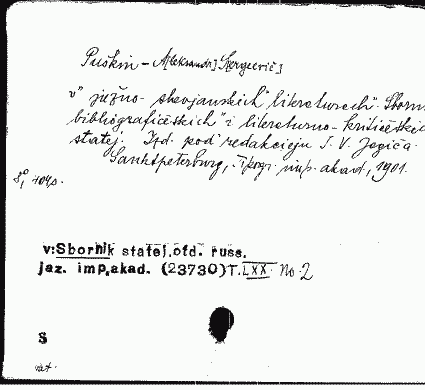 Puškin - A[leksandr] S[ergeevič]
v" južno-slovjanskich" literaturach". Sborn
bibliografičeskich" i literaturno-kritičeskic
statej. Izd. pod" redakcieju I. V. Jagiča.
Sanktpeterburg, Tipogr. imp. akad., 1901.
8°,
v:Sbornik statej.otd. russ.
jaz. imp.akad. (23730)T.LXX. No 2
S